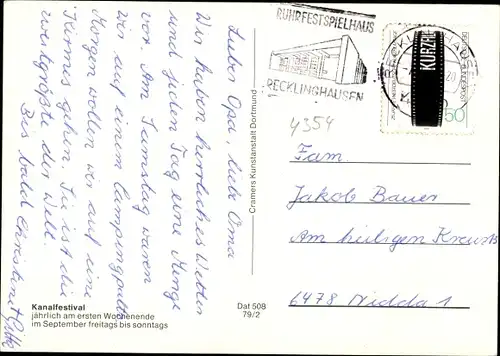 Lieber Opa, liebe Oma
Wir haben herrliches Wetter
und jeden Tag eine Menge
vor. Am Samstag waren
wir auf einem Campingplatz
Morgen wollen wir auf eine
Kirmes gehen. Sie ist die
zweitgrößte der Welt.
Bis bald Christine +
Kanalfestival
jährlich am ersten Wochenende
im September freitags bis sonntags
Dat 508
79/2
Cramers Kunstanstalt Dortmund
RUHRFESTSPIELHAUS
RECKLINGHAUSEN
KURZFI
50
4354
Fam.
Jakob Bauer
Am heiligen Kreuz 5
6478 Nidda 1